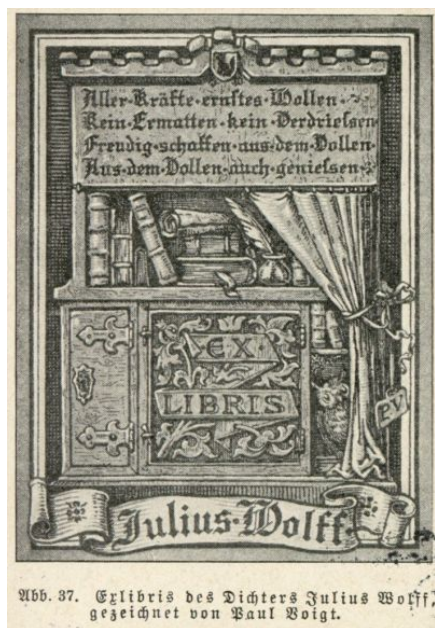 Aller·Kräfte·ernstes·Wollen·
Kein·Ermatten·kein·Verdriessen
Freudig·schaffen·aus·dem·Vollen·
Aus·dem·Vollen·auch·geniessen·
EX·
LIBRIS
PV
Julius·Wolff·
Abb. 37. Exlibris des Dichters Julius Wolff,
gezeichnet von Paul Voigt.